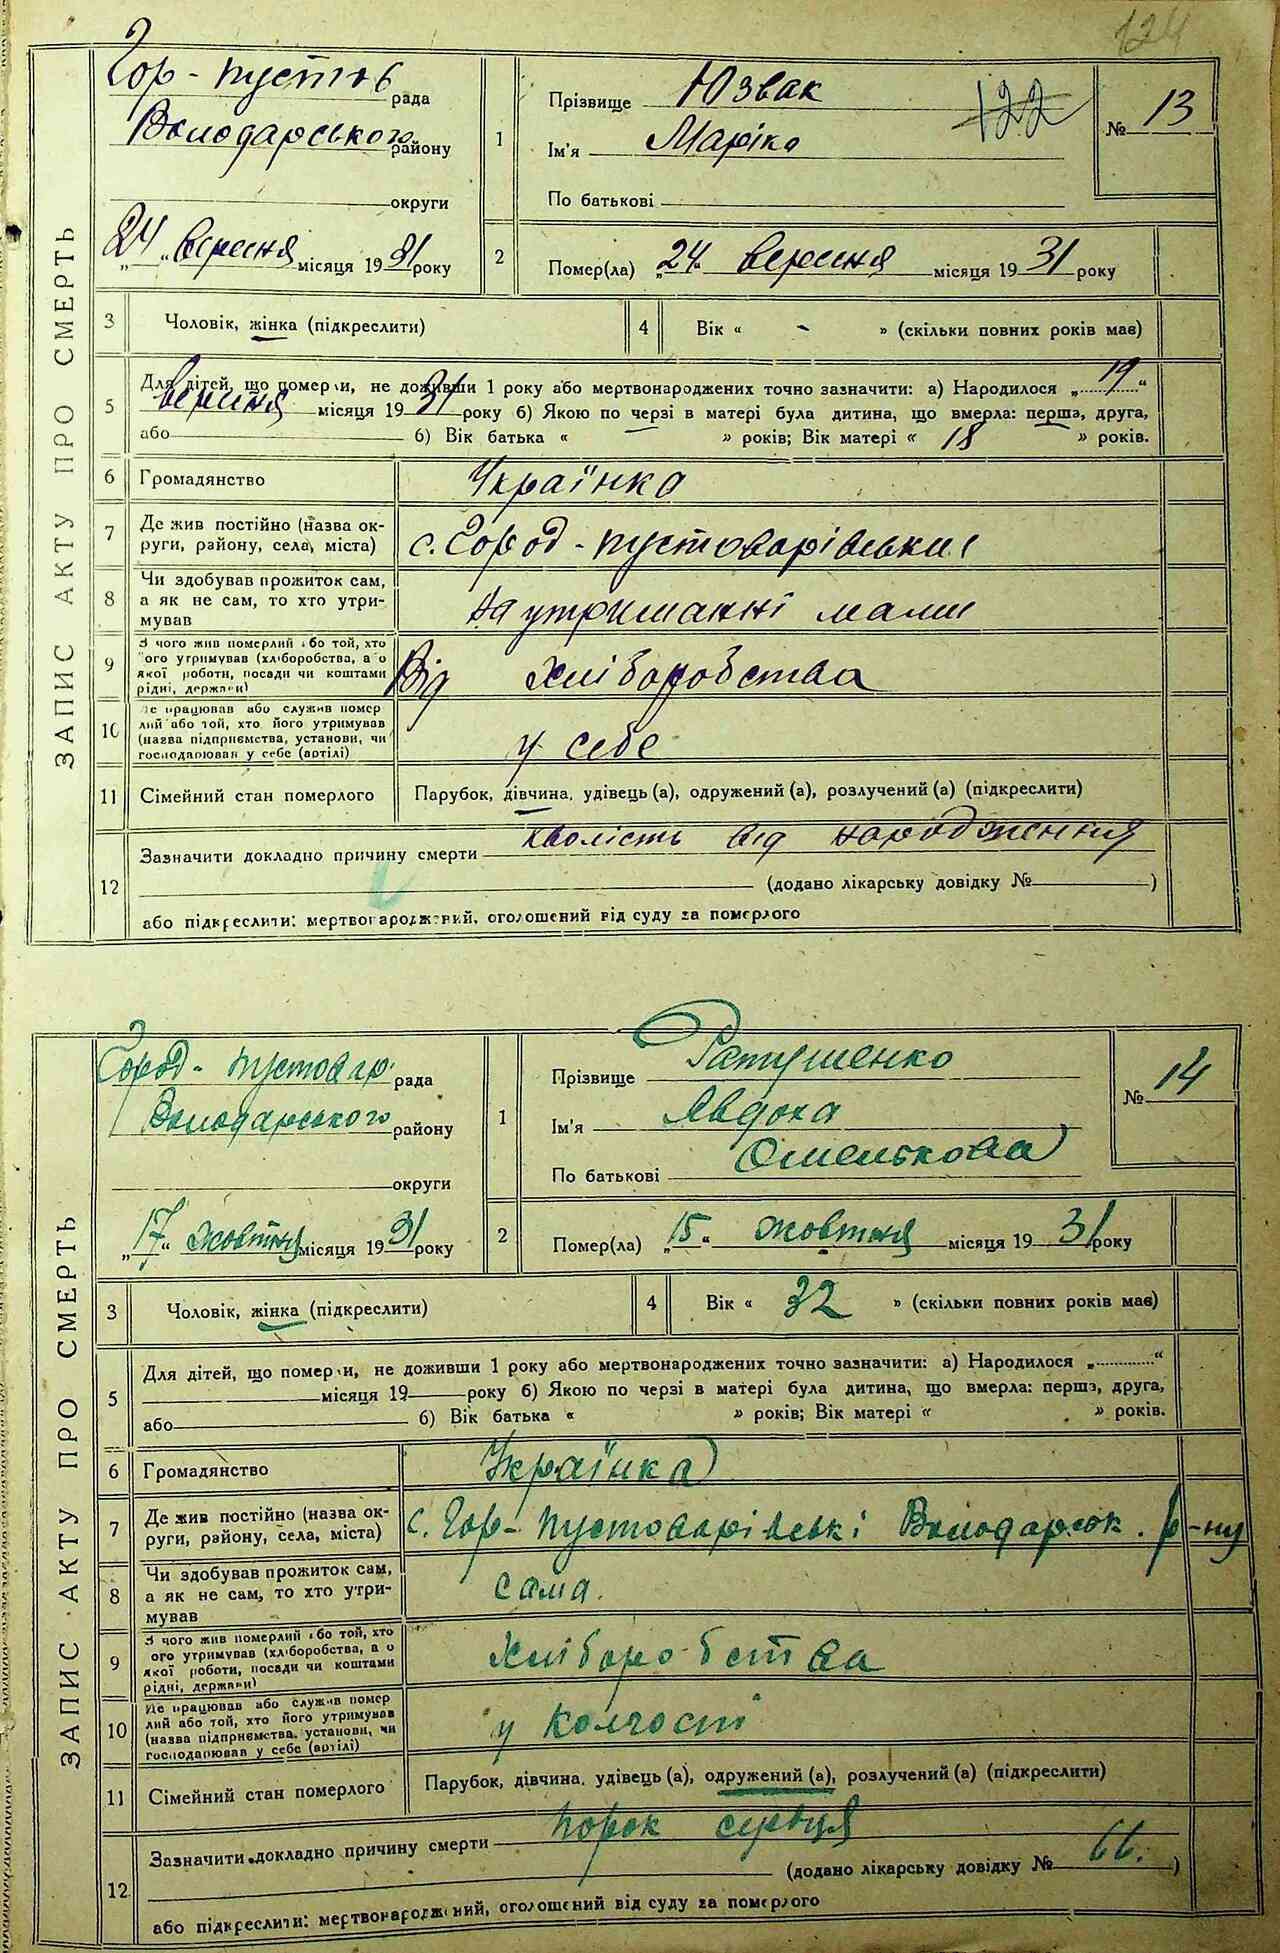 124
ЗАПИС АКТУ ПРО СМЕРТЬ
Гор - пустов рада
Володарського району
округи
„24“ вересня місяця 1931 року
1
Прізвище Юзвак
Ім'я Маріка
По батькові
122
№ 13
2
Помер(ла) „24“ вересня місяця 1931 року
3
Чоловік, жінка (підкреслити)
4
Вік « - » (скільки повних років має)
5
Для дітей, що померли, не доживши 1 року або мертвонароджених точно зазначити: а) Народилося „19“
вересня місяця 1931 року б) Якою по черзі в матері була дитина, що вмерла: перша, друга,
або 6) Вік батька « » років; Вік матері « 18 » років.
6
Громадянство Українка
7
Де жив постійно (назва ок-
руги, району, села, міста) с. Город - пустоварівськи
8
Чи здобував прожиток сам,
а як не сам, то хто утри-
мував
На утриманні мами
9
З чого жив померлий або той, хто
ого утримував (хліборобства, а о
якої роботи, посади чи коштами
рідні, держави)
Від Хліборобства
10
Де працював або служив помер
лий або той, хто його утримував
(назва підприємства, установи, чи
господарював у себе (артілі)
у себе
11
Сімейний стан померлого Парубок, дівчина, удівець (а), одружений (а), розлучений (а) (підкреслити)
12
Зазначити докладно причину смерти Кволість від народження
(додано лікарську довідку № )
або підкреслити: мертвонароджений, оголошений від суду за померлого
ЗАПИС АКТУ ПРО СМЕРТЬ
Город - пустовар. рада
Володарського району
округи
„17“ жовтня місяця 1931 року
1
Прізвище Ратушенко
Ім'я Явдоха
По батькові Омелькова
№ 14
2
Помер(ла) „15“ жовтня місяця 1931 року
3
Чоловік, жінка (підкреслити)
4
Вік « 32 » (скільки повних років має)
5
Для дітей, що померли, не доживши 1 року або мертвонароджених точно зазначити: а) Народилося „ “
місяця 19 року б) Якою по черзі в матері була дитина, що вмерла: перша, друга,
або 6) Вік батька « » років; Вік матері « » років.
6
Громадянство Українка
7
Де жив постійно (назва ок-
руги, району, села, міста) с. Гор - пустоварівські Володарськ. р-ну
8
Чи здобував прожиток сам,
а як не сам, то хто утри-
мував
сама.
9
З чого жив померлий або той, хто
ого утримував (хліборобства, а о
якої роботи, посади чи коштами
рідні, держави)
Хліборобства
10
Де працював або служив помер
лий або той, хто його утримував
(назва підприємства, установи, чи
господарював у себе (артілі)
у колгості
11
Сімейний стан померлого Парубок, дівчина, удівець (а), одружений (а), розлучений (а) (підкреслити)
12
Зазначити докладно причину смерти порок сердця
(додано лікарську довідку № 66. )
або підкреслити: мертвонароджений, оголошений від суду за померлого